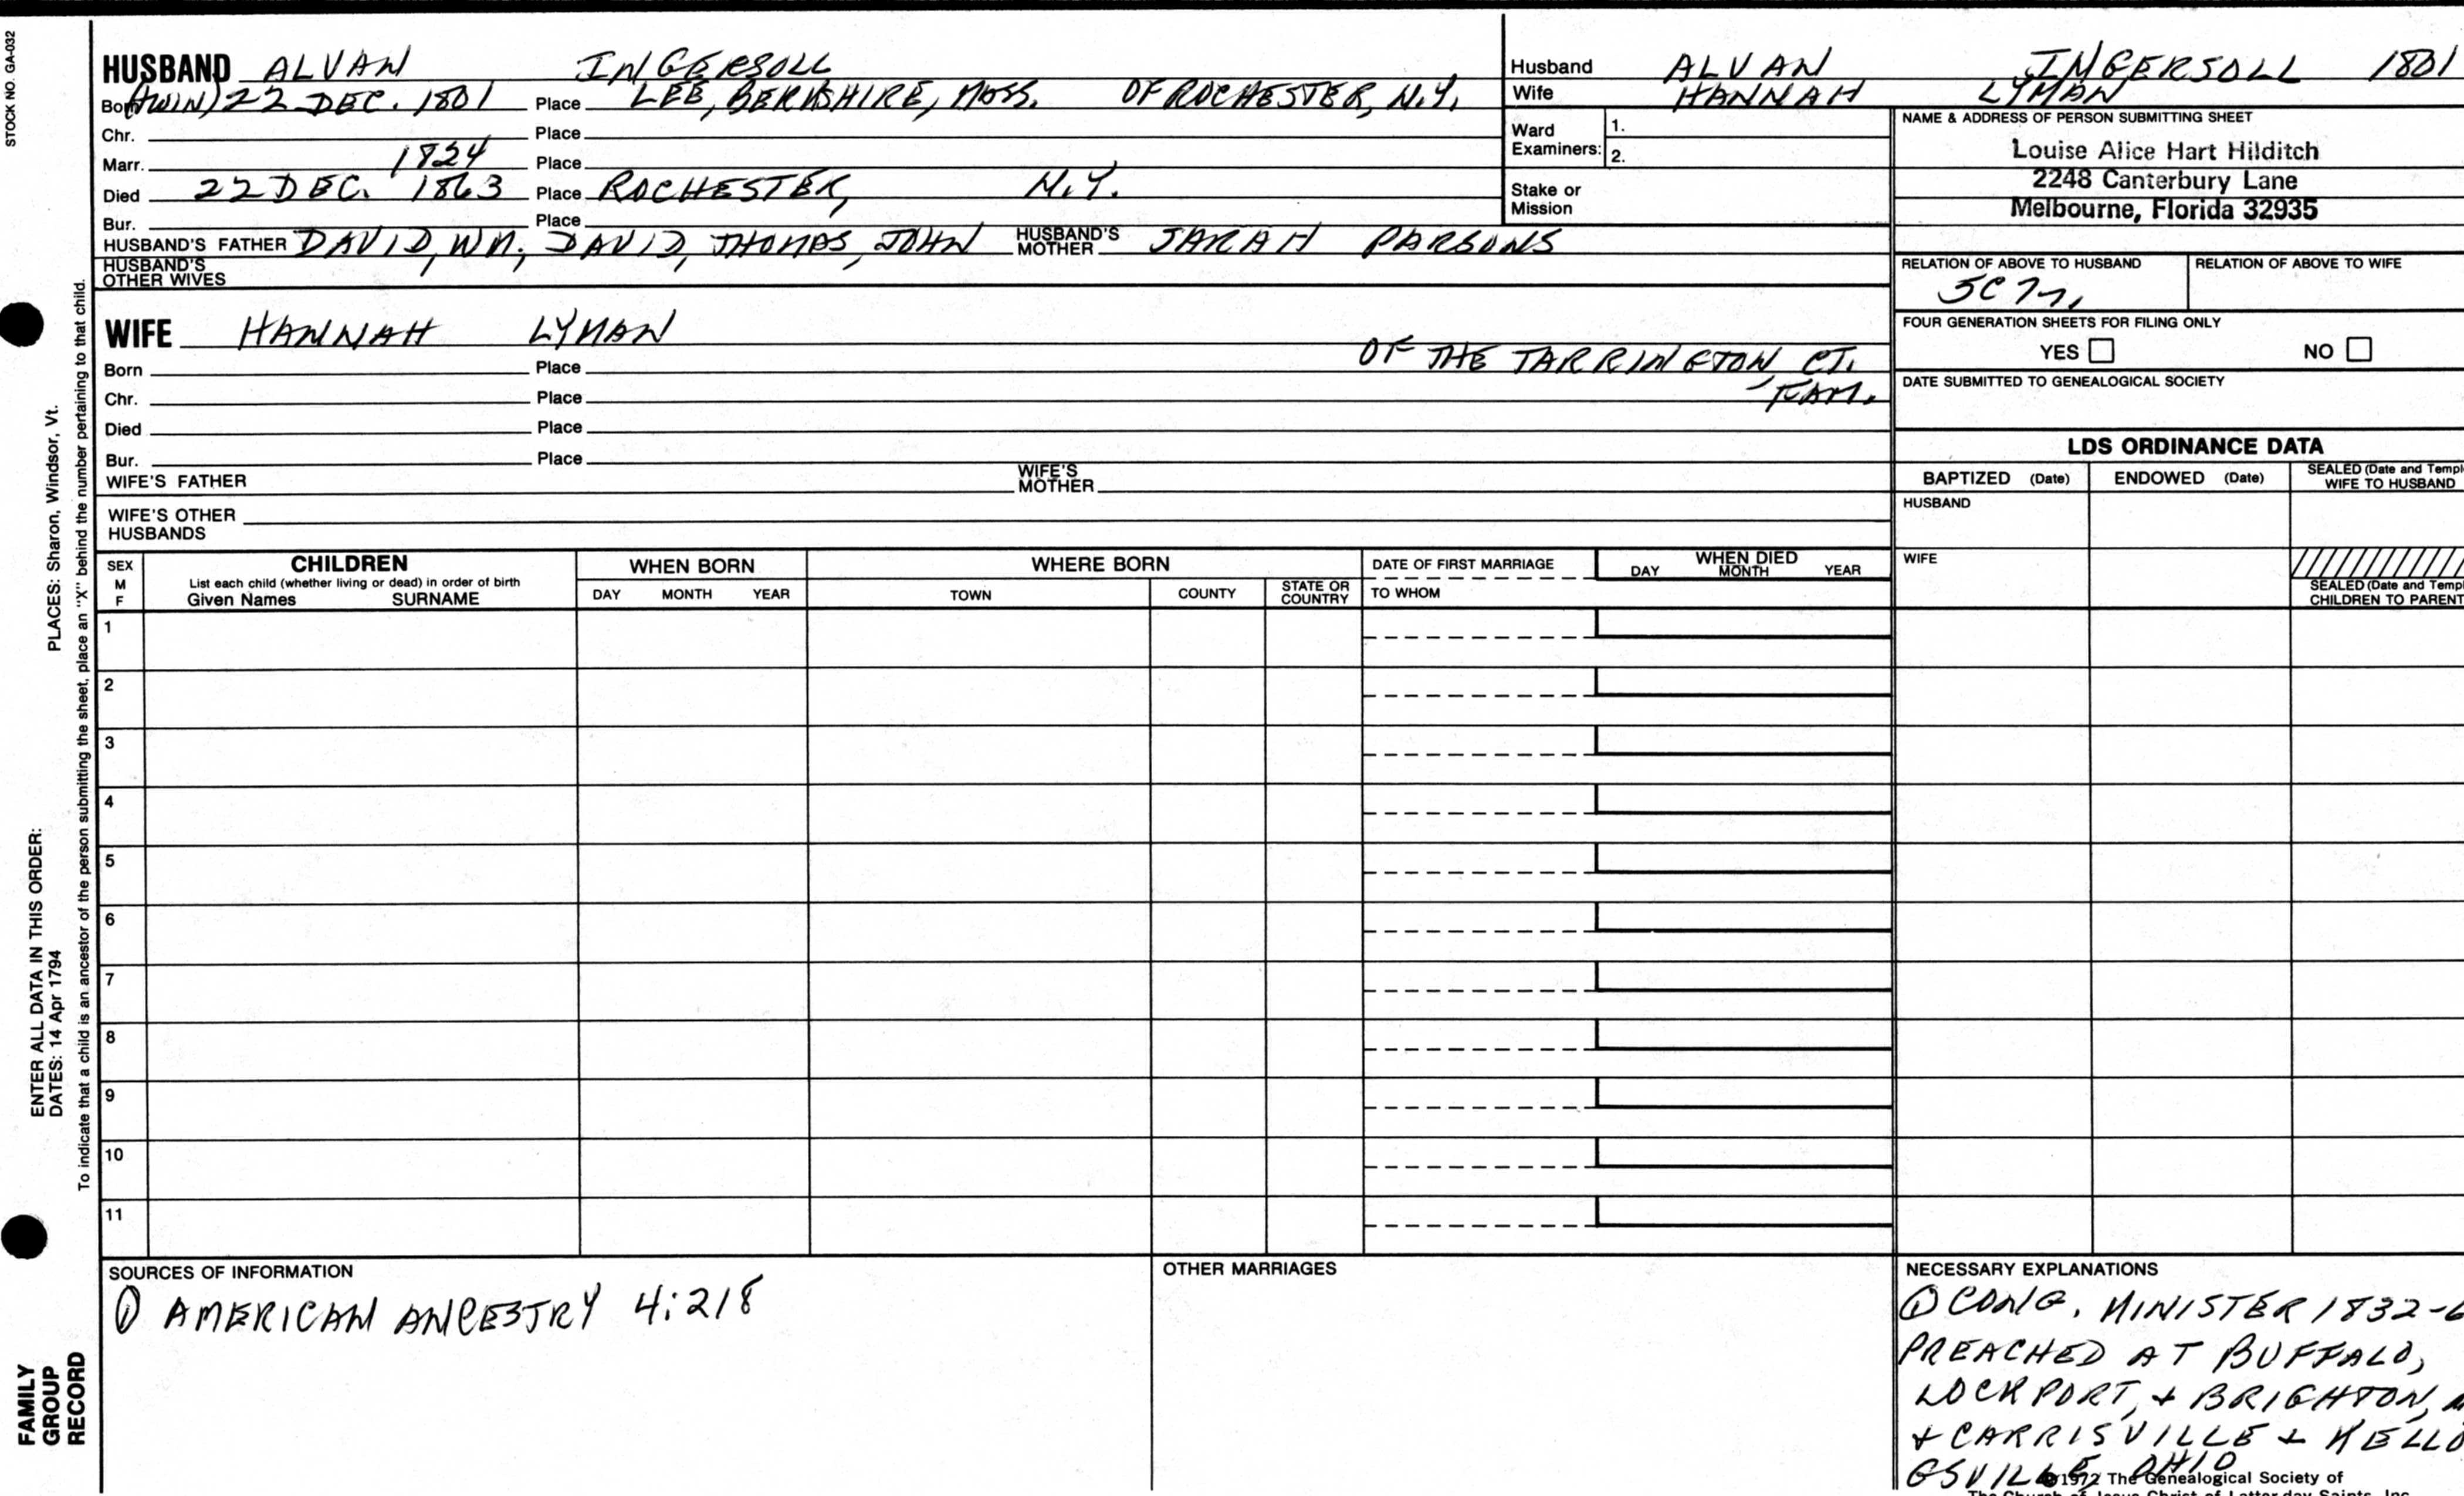 STOCK NO. GA-032
HUSBAND ALVAN INGERSOLL
Born (TWIN) 22 DEC. 1801 Place LEE, BERKSHIRE, MASS. OF ROCHESTER, N.Y.
Chr. Place
Marr. 1824 Place
Died 22 DEC. 1863 Place ROCHESTER, N.Y.
Bur. Place
HUSBAND'S FATHER DAVID, WM, DAVID, THOMAS, JOHN HUSBAND'S MOTHER SARAH PARSONS
HUSBAND'S OTHER WIVES
Husband ALVAN INGERSOLL 1801
Wife HANNAH LYMAN
Ward Examiners: 1.
2.
Stake or Mission
NAME & ADDRESS OF PERSON SUBMITTING SHEET
Louise Alice Hart Hilditch
2248 Canterbury Lane
Melbourne, Florida 32935
RELATION OF ABOVE TO HUSBAND RELATION OF ABOVE TO WIFE
FOUR GENERATION SHEETS FOR FILING ONLY
YES NO
DATE SUBMITTED TO GENEALOGICAL SOCIETY
WIFE HANNAH LYMAN
OF THE TARRINGTON, CT.
FAM.
Born Place
Chr. Place
Died Place
Bur. Place
WIFE'S FATHER WIFE'S MOTHER
WIFE'S OTHER HUSBANDS
LDS ORDINANCE DATA
BAPTIZED (Date) ENDOWED (Date) SEALED (Date and Templ
WIFE TO HUSBAND
HUSBAND
WIFE
SEALED (Date and Templ
CHILDREN TO PARENT
SEX
M
F
CHILDREN
List each child (whether living or dead) in order of birth
Given Names SURNAME
WHEN BORN
DAY MONTH YEAR
WHERE BORN
TOWN COUNTY STATE OR COUNTRY
DATE OF FIRST MARRIAGE
TO WHOM
WHEN DIED
DAY MONTH YEAR
1
2
3
4
5
6
7
8
9
10
11
SOURCES OF INFORMATION
① AMERICAN ANCESTRY 4:218
OTHER MARRIAGES
NECESSARY EXPLANATIONS
① CONG. MINISTER 1832-6
PREACHED AT BUFFALO,
LOCKPORT, + BRIGHTON,
+ CARRISVILLE + KELLO
GSVILLE, OHIO
©1972 The Genealogical Society of
The Church of Jesus Christ of Latter-day Saints, Inc.
PLACES: Sharon, Windsor, Vt.
ENTER ALL DATA IN THIS ORDER:
DATES: 14 Apr 1794
To indicate that a child is an ancestor of the person submitting the sheet, place an "X" behind the number pertaining to that child.
FAMILY
GROUP
RECORD